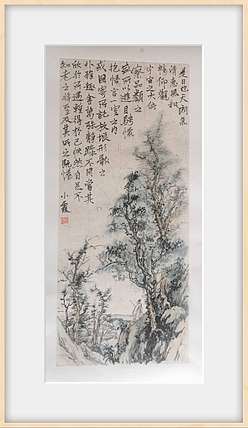 是日也天朗氣
清惠風和
暢仰觀
宇宙之大俯
察品類之
盛所以遊目騁懷
抱悟言一室之內
或因寄所託放浪形骸之
外雖趣舍萬殊靜躁不同當其
欣於所遇暫得於己快然自足不
知老之將至及其所之既倦
小霞